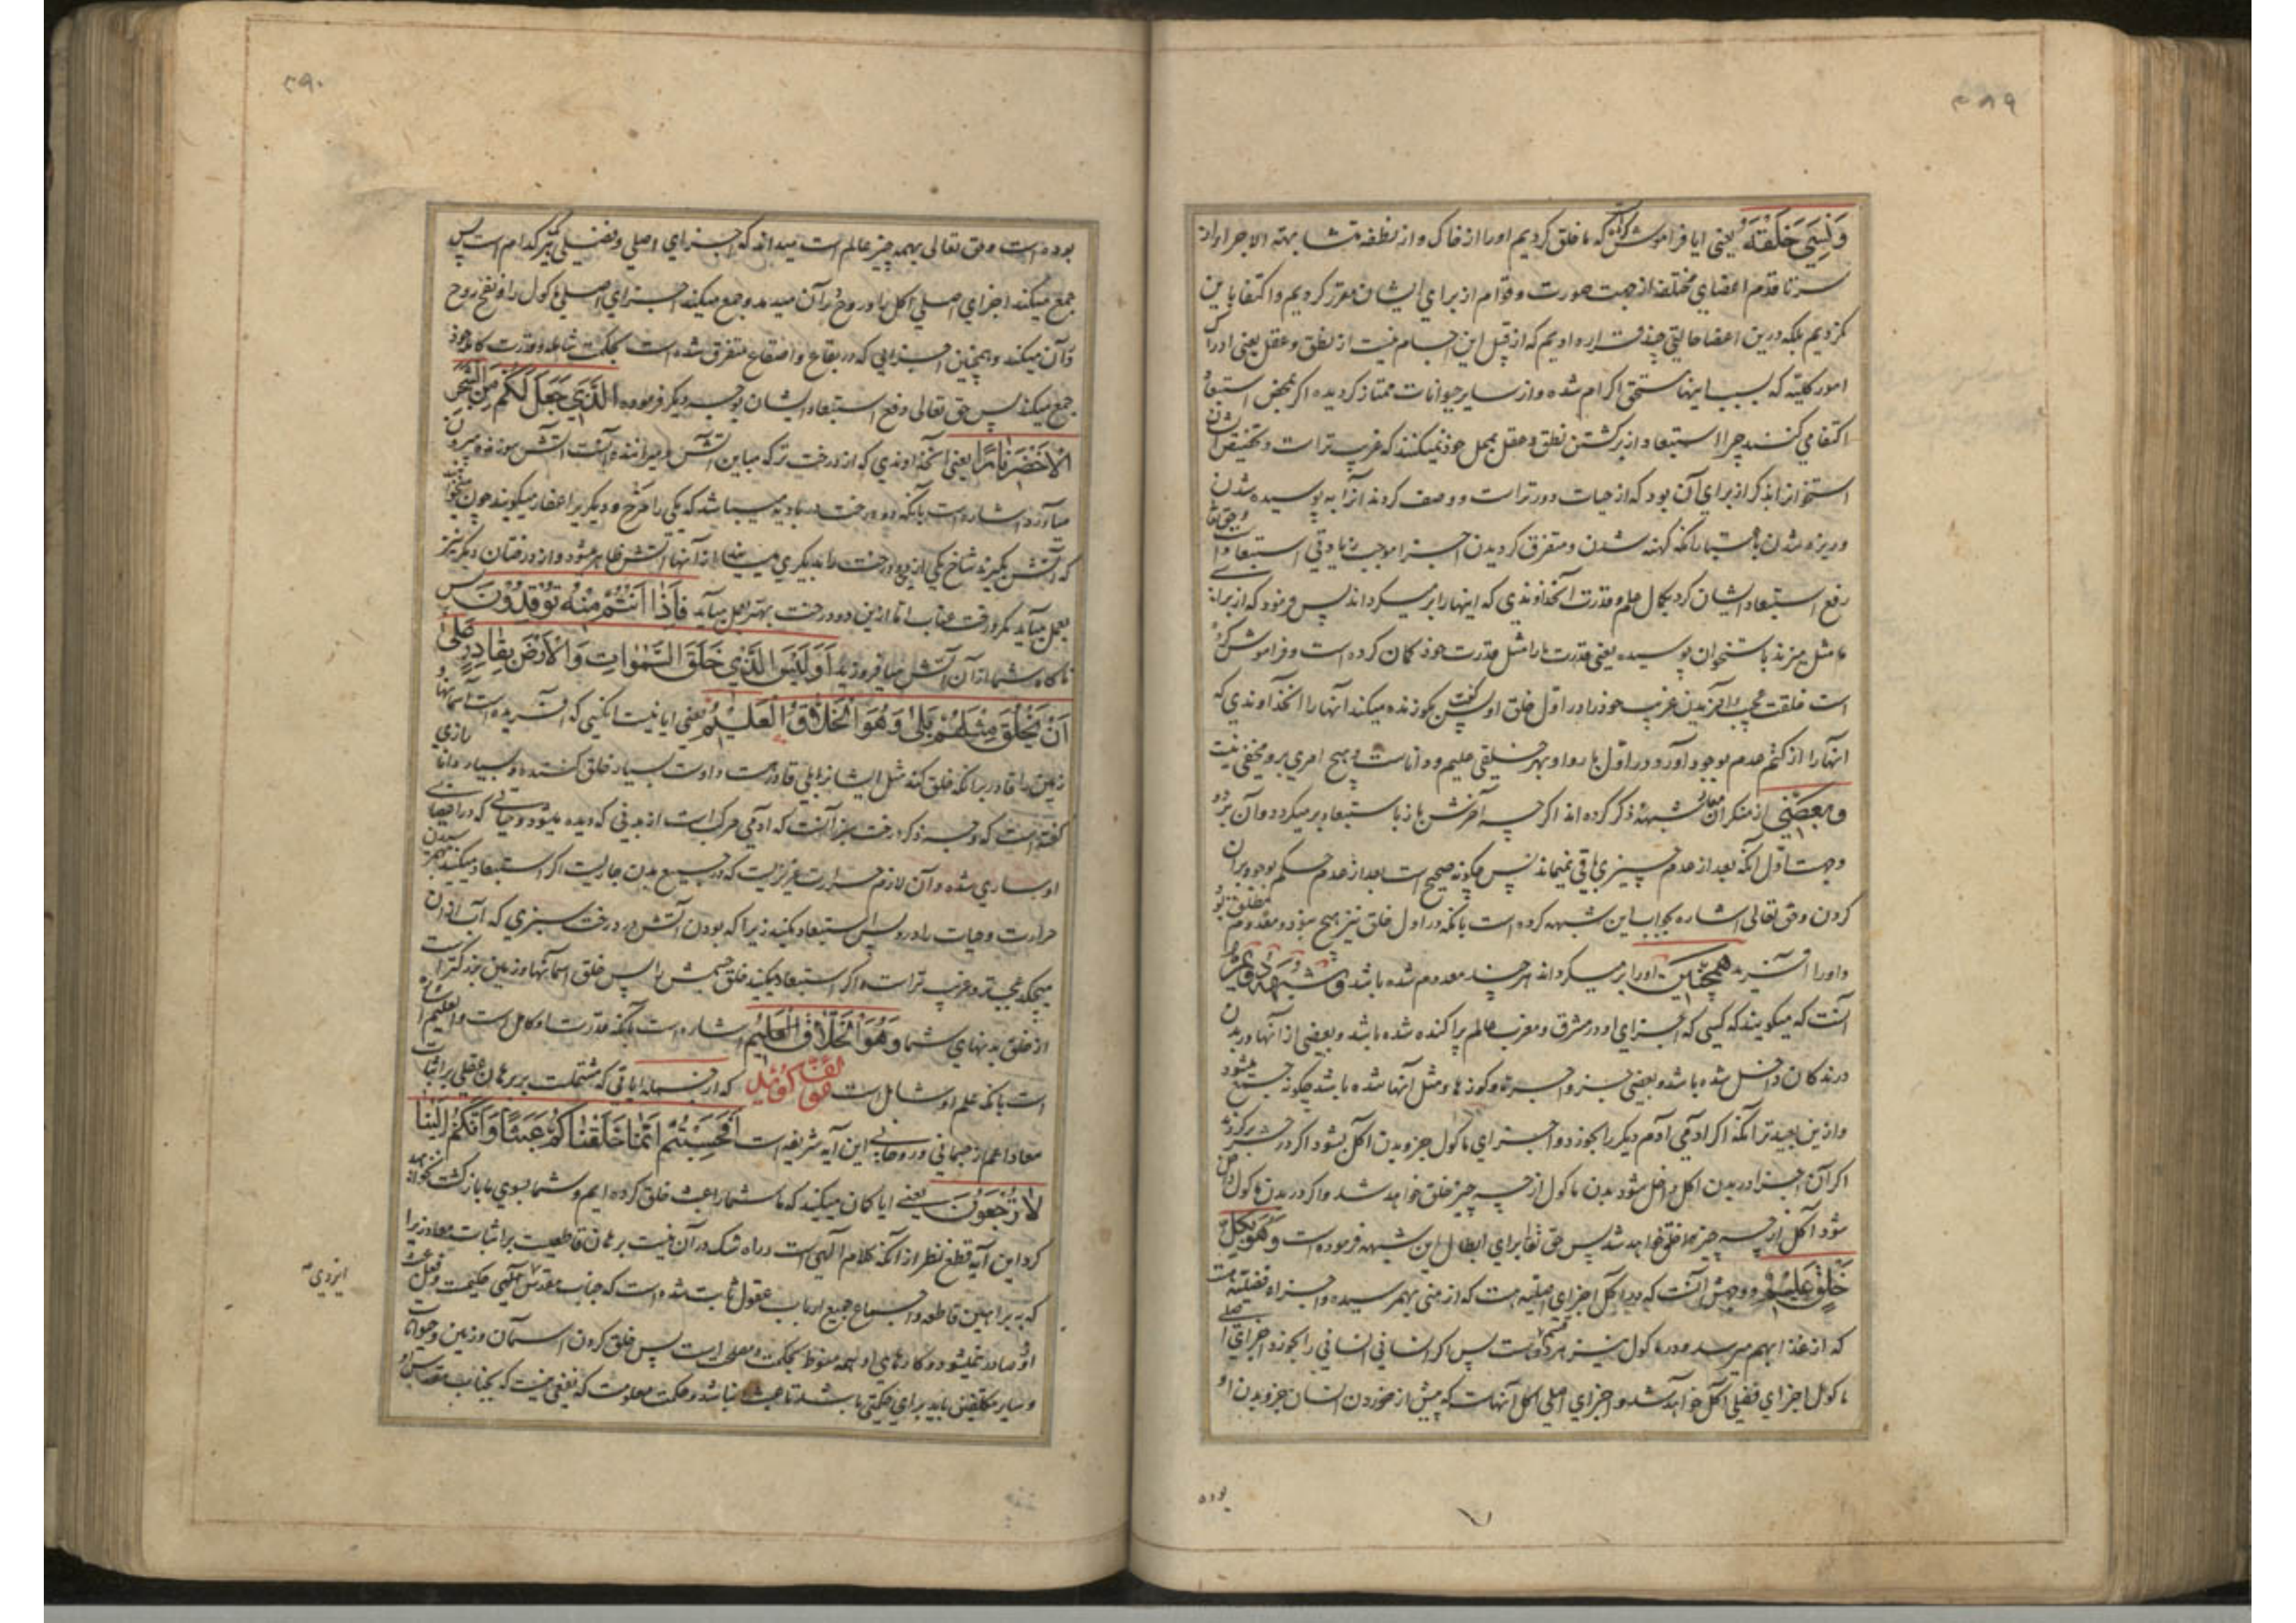 ۳۸۹
وَنَسِيَ خَلْقَهُ یعنی ایا فراموش کرد که ما خلق کردیم او را از خاک و از نطفه متشابهة الاجزا و از
سر تا قدم اعضای مختلفه از جهت صورت و قوام از برای ایشان مقرر کردیم و اکتفا باین
نکردیم بلکه درین اعضا حالتی چند قرار دادیم که از قبل این اجسام نیست از نطق و عقل یعنی ادراک
امور کلیه که بسبب اینها مستحق اکرام شده و از سایر حیوانات ممتاز گردیده اگر بمحض استبعاد
اکتفا می کنند چرا استبعاد از برگشتن نطق و عقل بمحل خود نمیکنند که غریب تر است و تخصیص ایشان
استخوان را بذکر از برای آن بود که از حیات دورتر است و وصف کردند آنرا به پوسیده شدن
و ریزه شدن باعتبار آنکه کهنه شدن و متفرق گردیدن اجزا موجب زیادتی استبعاد است و حق تعا
رفع استبعاد ایشان کرد بکمال علم و قدرت آنخداوندی که اینها را بر میگرداند پس فرمود که از برای
ما مثل میزند باستخوان پوسیده یعنی قدرت ما را مثل قدرت خود گمان کرده است و فراموش کرده
است خلقت عجیب و آفریدن غریب خود را در اول خلق او پس گفت چگونه زنده میکند آنها را آنخداوندی که
اینها را از کتم عدم بوجود آورد در اول بار و او بهر خلیقی علیم و داناست و هیچ امری برو مخفی نیست
و بعضی از منکران معاد شبهه ذکر کرده اند اگر چه آخرش باز باستبعاد بر میگردد و آن بر دو
وجه است اول آنکه بعد از عدم چیزی باقی نمیماند پس چگونه صحیح است بعد از عدم حکم بوجود بر آن
کردن و حق تعالی اشاره بجواب این شبهه کرده است بانکه در اول خلق نیز هیچ نبود و معدوم مطلق بود
و او را آفرید همچنین او را بر میگرداند هر چند معدوم شده باشد و شبهه دوم
آنست که میگویند که کسی که اجزای او در مشرق و مغرب عالم پراکنده شده باشد و بعضی از آنها در بدن
درندگان داخل شده باشد و بعضی جزو اجرها و کوزها و مثل آنها شده باشد چگونه جمع میشود
و ازین بعیدتر آنکه اگر آدمی آدم دیگر را بخورد و اجزای ماکول جزو بدن آکل بشود اگر در حشر برگردد
اگر آن اجزا در بدن آکل داخل شود بدن ماکول از چه چیز خلق خواهد شد و اگر در بدن ماکول داخل
شود آکل از چه چیز خلق خواهد شد پس حق تعا برای ابطال این شبهه فرموده است وَهُوَ بِكُلِّ
خَلْقٍ عَلِيمٌ و وجهش آنست که در آکل اجزای اصلیه هست که از منی بهمرسیده و اجزاء فضلیه هست
که از غذا بهم میرسد و در ماکول نیز هر دو قسم هست پس اگر انسانی انسانی را بخورد اجزای اصلی
ماکول اجزای فضلی آکل خواهد شد و اجزای اصلی آکل آنهاست که پیش از خوردن انسان جزو بدن او
بوده
۳۹۰
بوده است و حق تعالی بهمه چیز عالم است میداند که اجزای اصلی و فضلی هر کدام است پس
جمع میکند اجزای اصلی آکل را و روح در آن میدمد و جمع میکند اجزای اصلی ماکول را و نفخ روح
در آن میکند و همچنین اجزایی که در بقاع و اصقاع متفرق شده است بحکمت شامله و قدرت کامله خود
جمع میکند پس حق تعالی دفع استبعاد ایشان بوجه دیگر فرموده الَّذِي جَعَلَ لَكُمْ مِنَ الشَّجَرِ
الْأَخْضَرِ نَارًا یعنی آنخداوندی که از درخت تر که مباین آتش و میراننده آنست آتش سوزنده بیرون
میآورد اشاره است بآنکه دو درخت در بادیه میباشد که یکی را مرخ و دیگریرا عفار میگویند چون میخواهند
که آتش بگیرند شاخ یکی ازین دو درخت را بدیگری میسایند از آنها آتش ظاهر میشود و از درختان دیگر نیز
بعمل میآید مگر درخت عناب اما ازین دو درخت بهتر بعمل میآید فَإِذَا أَنْتُمْ مِنْهُ تُوقِدُونَ پس
ناگاه شما از آن آتش میافروزید أَوَلَيْسَ الَّذِي خَلَقَ السَّمَوَاتِ وَالْأَرْضَ بِقَادِرٍ عَلَى
أَنْ يَخْلُقَ مِثْلَهُمْ بَلَى وَهُوَ الْخَلَّاقُ الْعَلِيمُ یعنی ایا نیست آنکسی که آفریده است آسمانها و
زمین را قادر بانکه خلق کند مثل ایشان را بلی قادر است و اوست بسیار خلق کننده و بسیار دانا رازی
گفته است که وجه ذکر درخت سبز آنست که آدمی مرکب است از بدنی که دیده میشود و حیاتی که در اعضای
او ساری شده و آن لازم حرارت غریزیست که در جمیع بدن جاریست اگر استبعاد میکنید بهم رسیدن
حرارت و حیات را در او پس استبعاد مکنید زیرا که بودن آتش در درخت سبزی که آب از آن
میچکد عجیب تر و غریب تر است و اگر استبعاد میکنید خلق جسمش را پس خلق آسمانها و زمین بزرگتر است
از خلق بدنهای شما وَهُوَ الْخَلَّاقُ الْعَلِيمُ اشاره است بآنکه قدرت او کامل است و العلیم اشاره
است بآنکه علم او شامل است که از جمله ایاتی که مشتملست بر برهان عقلی بر اثبات
معاد اعم از جسمانی و روحانی این آیه شریفه است أَفَحَسِبْتُمْ أَنَّمَا خَلَقْنَاكُمْ عَبَثًا وَأَنَّكُمْ إِلَيْنَا
لَا تُرْجَعُونَ یعنی ایا گمان میکنید که ما شما را عبث خلق کرده ایم و شما بسوی ما بازگشت نخواهید
کرد این آیه قطع نظر از آنکه کلام الهی است و راه شک در آن نیست برهان قاطعیست بر اثبات معاد زیرا
که به براهین قاطعه و اجماع جمیع ارباب عقول ثابت شده است که جناب مقدس الهی حکیمست و فعل عبث
ازو صادر نمیشود و کارهای او همه منوط بحکمت و مصلحت است پس خلق کردن آسمان و زمین و حیوانات
و سایر مکلفین باید برای حکمتی باشد تا عبث نباشد و حکمت معلومست که نفعی نیست که بجناب مقدس او
ایزدی